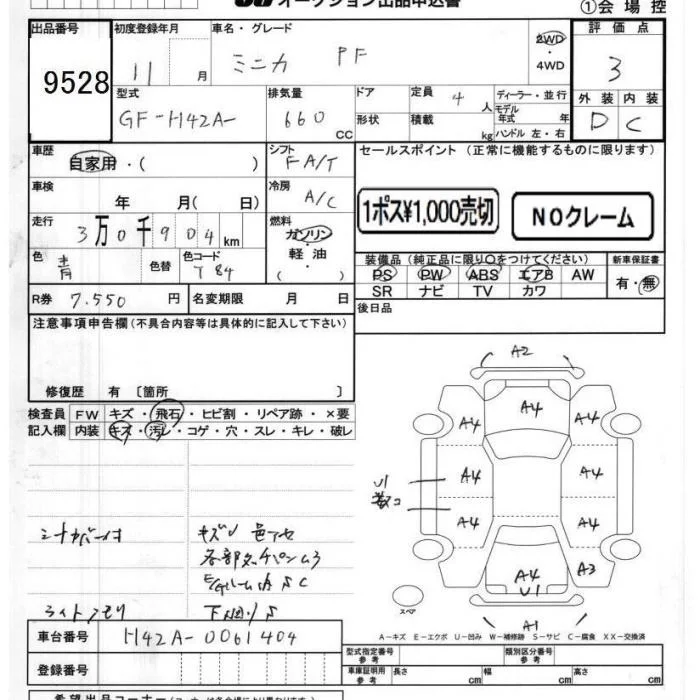 オークション出品申込書
①会場控
出品番号 初度登録年月 車名・グレード 評価点
9528 11 月 ミニカ PF 2WD・4WD 3
型式 排気量 ドア 定員 ディーラー・並行 外装 内装
GF-H42A- 660 CC 形状 4人 積載 kg モデル年式 年 ハンドル 左・右 D C
車歴 シフト セールスポイント (正常に機能するものに限ります)
自家用・( ) FA/T
車検 冷房 1ポス¥1,000売切 NOクレーム
年 月( 日) A/C
走行 燃料
3万0千904km ガソリン・軽油・( )
色 色替 色コード 装備品(純正品に限り○をつけてください) 新車保証書
青 T84 PS PW ABS エアB AW 有・無
SR ナビ TV カワ
R券 7.550 円 名変期限 月 日 後日品
注意事項申告欄(不具合内容等は具体的に記入して下さい)
修復歴 有〔箇所 〕
検査員 FW キズ・飛石・ヒビ割・リペア跡・×要
記入欄 内装 キズ・汚レ・コゲ・穴・スレ・キレ・破レ
A2
A4
A4 A4
A4 A4
U1
A4 A4
A4 A3
U1
A1
スペア
シートカバー付 キズU 色アセ
ライトクモリ 下廻りS
A－キズ E－エクボ U－凹み W－補修跡 S－サビ C－腐食 XX－交換済
車台番号 H42A-0061404
型式指定番号 参考 類別区分番号 参考
登録番号 車庫証明用 参考 長さ cm 幅 cm 高さ cm
希望出品コーナー